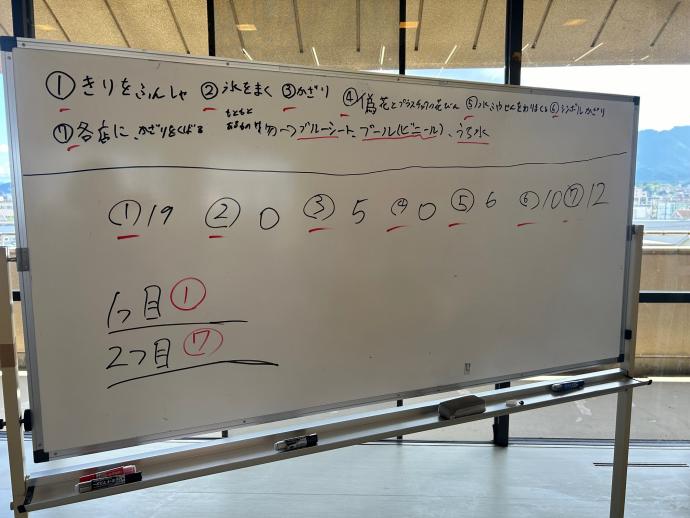 ①きりをふんしゃ ②氷をまく ③かざり ④偽花とプラスチックの花びん ⑤氷 ⑥シンボルかざり
⑦各店に、かざりをくばる もともと 物→ブルーシート、プール(ビニール)、うろ水
①19 ②0 ③5 ④0 ⑤6 ⑥10 ⑦12
1つ目①
2つ目⑦